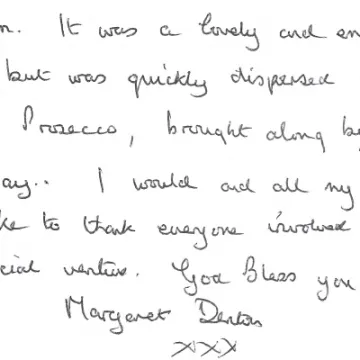 n. It was a lovely and en
but was quickly dispersed
Prosecco, brought along by
ay.. I would and all my
ke to thank everyone involved
cial venture. God Bless you
Margaret Denton
xxx